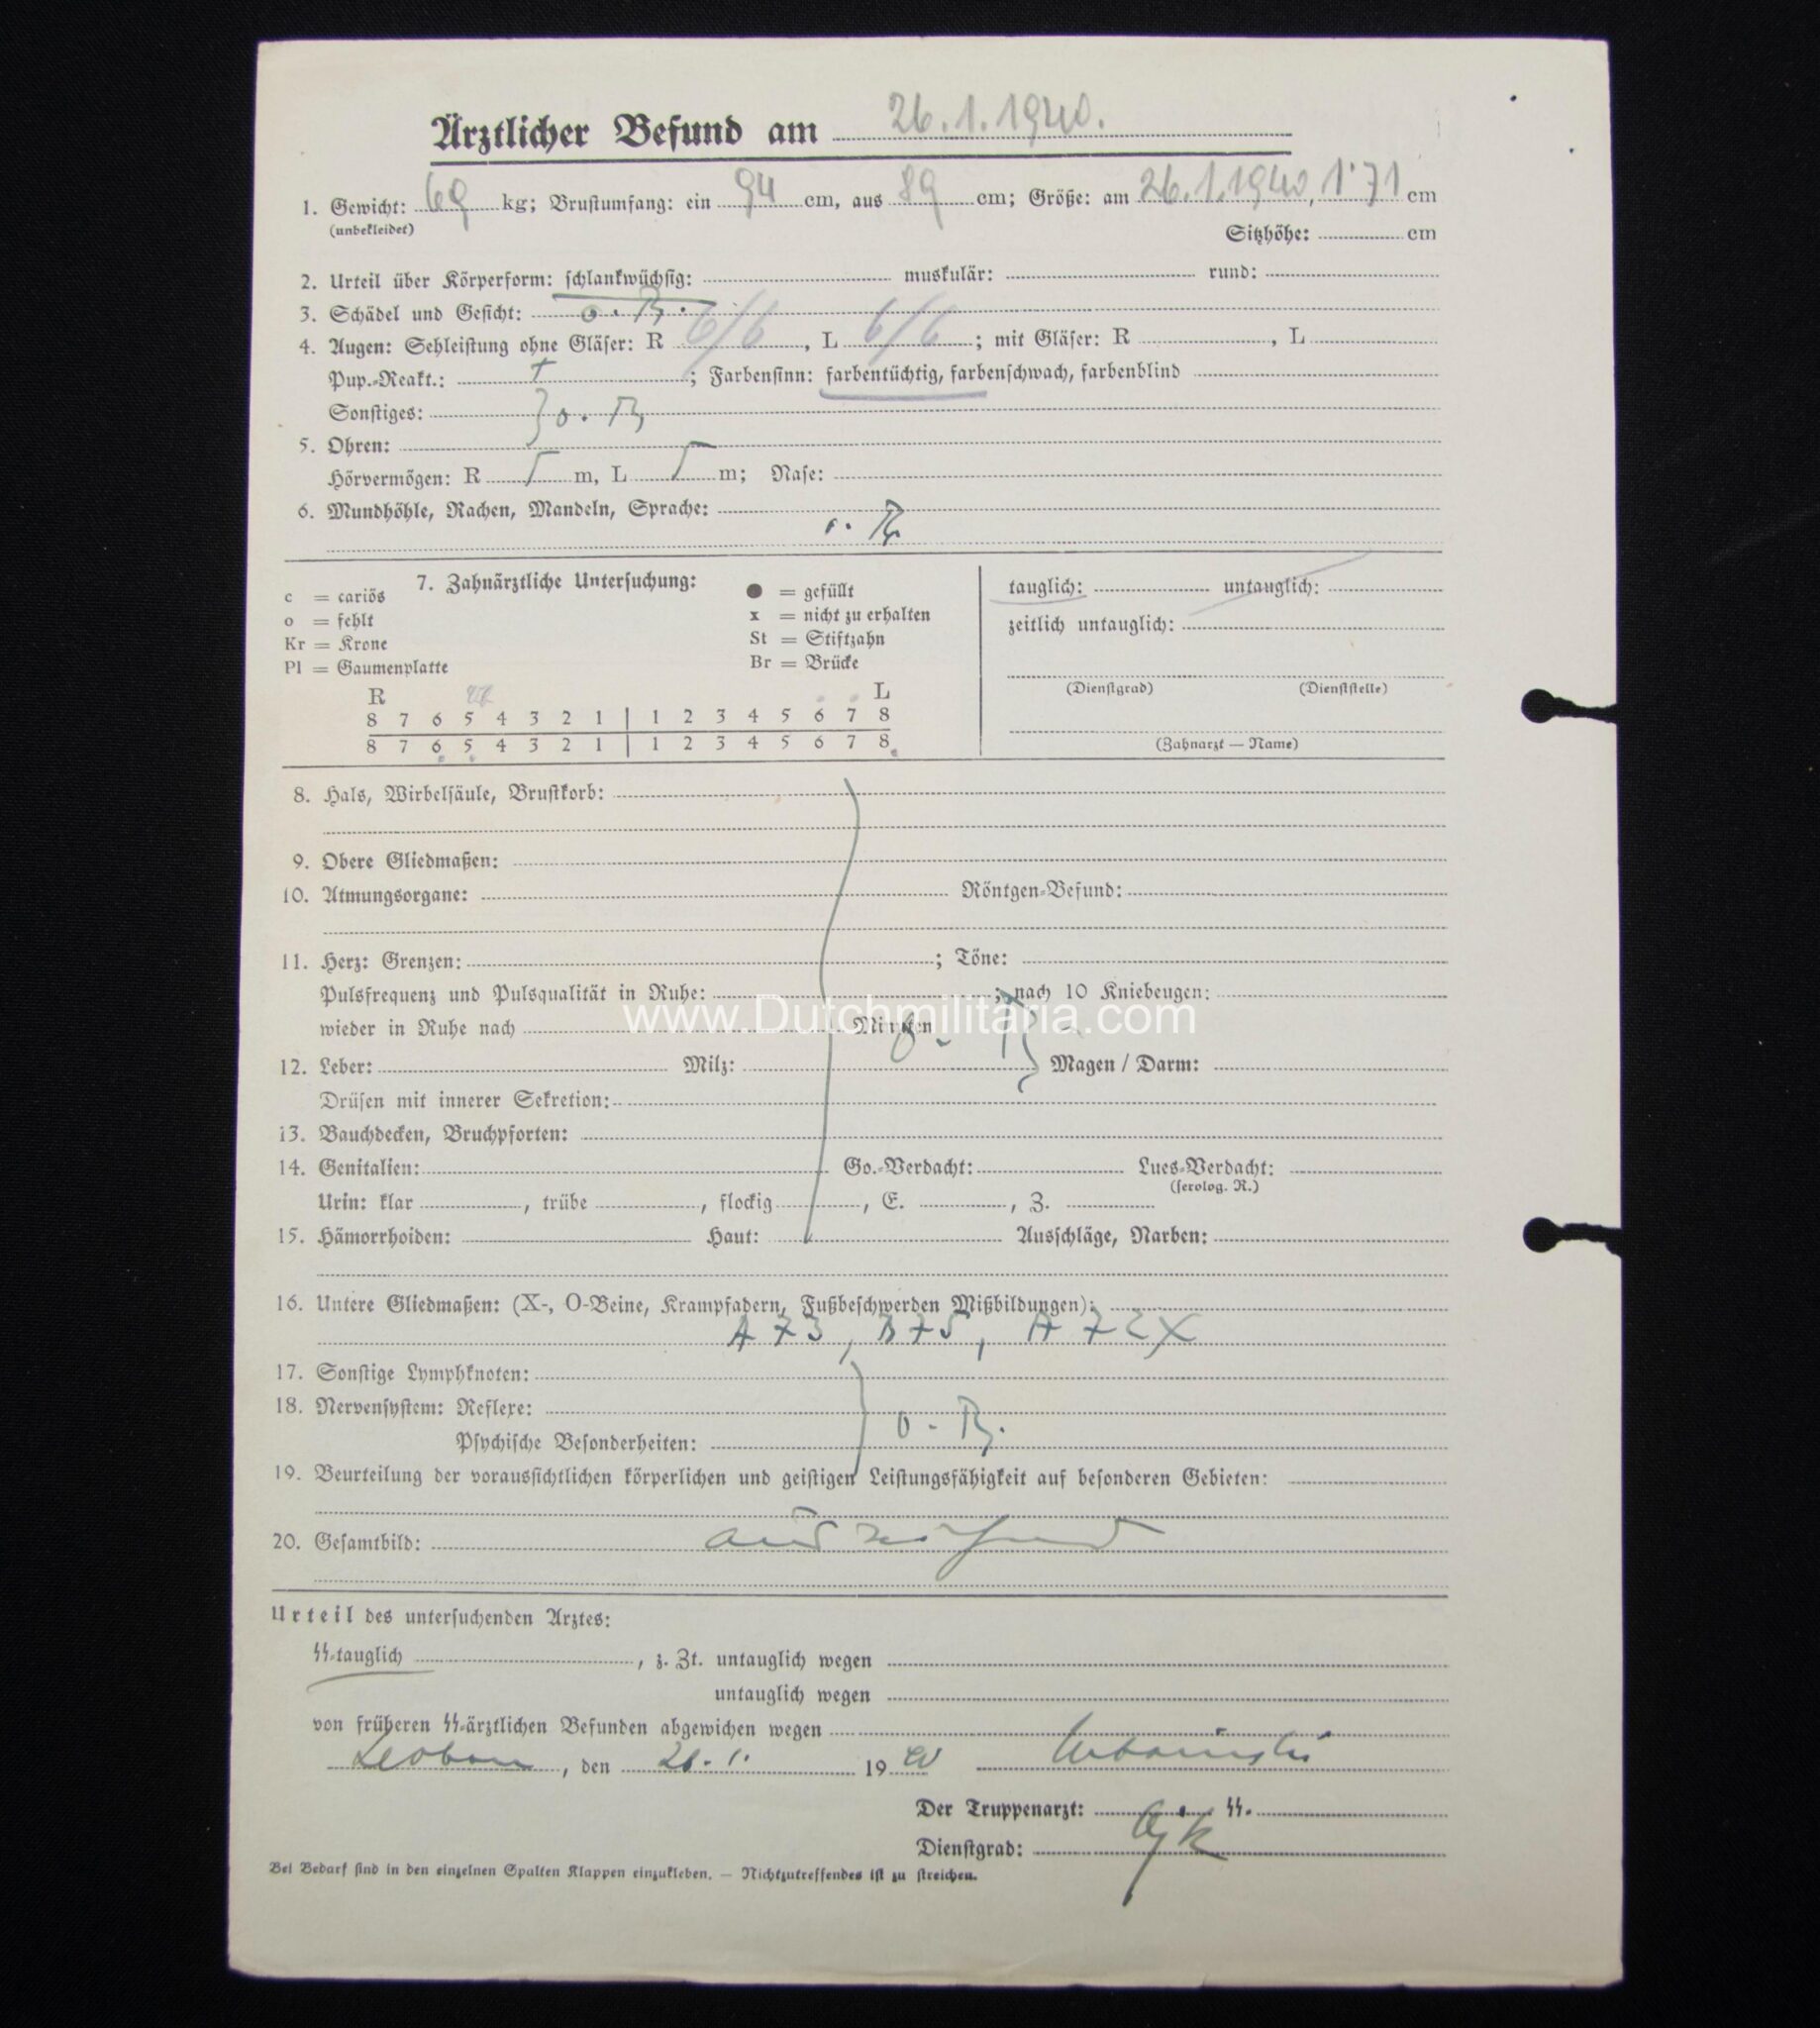 Ärztlicher Befund am 26.1.1940.
1. Gewicht: 69 kg; Brustumfang: ein 94 cm, aus 89 cm; Größe: am 26.1.1940, 1·71 cm
(unbekleidet)
Sitzhöhe: cm
2. Urteil über Körperform: schlankwüchsig: muskulär: rund:
3. Schädel und Gesicht: o. B.
4. Augen: Sehleistung ohne Gläser: R 6/6, L 6/6; mit Gläser: R , L
Pup.-Reakt.: + ; Farbensinn: farbentüchtig, farbenschwach, farbenblind
Sonstiges: o. B.
5. Ohren:
Hörvermögen: R m, L m; Nase:
6. Mundhöhle, Rachen, Mandeln, Sprache:
o. B.
7. Zahnärztliche Untersuchung:
c = cariös
o = fehlt
Kr = Krone
Pl = Gaumenplatte
● = gefüllt
x = nicht zu erhalten
St = Stiftzahn
Br = Brücke
R L
8 7 6 5 4 3 2 1 | 1 2 3 4 5 6 7 8
8 7 6 5 4 3 2 1 | 1 2 3 4 5 6 7 8
tauglich: untauglich:
zeitlich untauglich:
(Dienstgrad) (Dienststelle)
(Zahnarzt — Name)
8. Hals, Wirbelsäule, Brustkorb:
9. Obere Gliedmaßen:
10. Atmungsorgane: Röntgen-Befund:
11. Herz: Grenzen: ; Töne:
Pulsfrequenz und Pulsqualität in Ruhe: ; nach 10 Kniebeugen:
www.Dutchmilitaria.com
wieder in Ruhe nach Minuten
12. Leber: Milz: Magen / Darm:
Drüsen mit innerer Sekretion:
13. Bauchdecken, Bruchpforten:
14. Genitalien: Go.-Verdacht: Lues-Verdacht:
(serolog. R.)
Urin: klar , trübe , flockig , E. , Z.
15. Hämorrhoiden: Haut: Ausschläge, Narben:
16. Untere Gliedmaßen: (X-, O-Beine, Krampfadern, Fußbeschwerden Mißbildungen):
A 73, B 75, A 72X
17. Sonstige Lymphknoten:
18. Nervensystem: Reflexe:
o. B.
Psychische Besonderheiten:
19. Beurteilung der voraussichtlichen körperlichen und geistigen Leistungsfähigkeit auf besonderen Gebieten:
20. Gesamtbild:
Urteil des untersuchenden Arztes:
ᛋᛋ-tauglich , z. Zt. untauglich wegen
untauglich wegen
von früheren ᛋᛋ-ärztlichen Befunden abgewichen wegen
Leoben, den 26.1. 1940
Der Truppenarzt: ᛋᛋ.
Dienstgrad:
Bei Bedarf sind in den einzelnen Spalten Klappen einzukleben. — Nichtzutreffendes ist zu streichen.